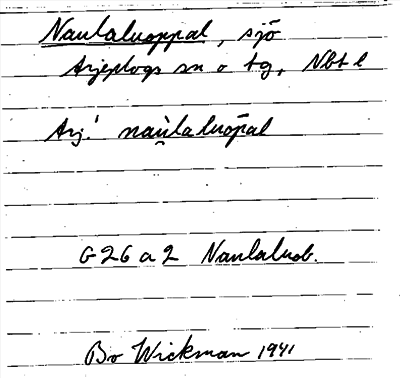 Naulaluoppal, sjö
Arjeplogs sn o tg, Nbt l
Arj. naùlaluōpal
G 26 a 2 Naulaluob.
Bo Wickman 1941